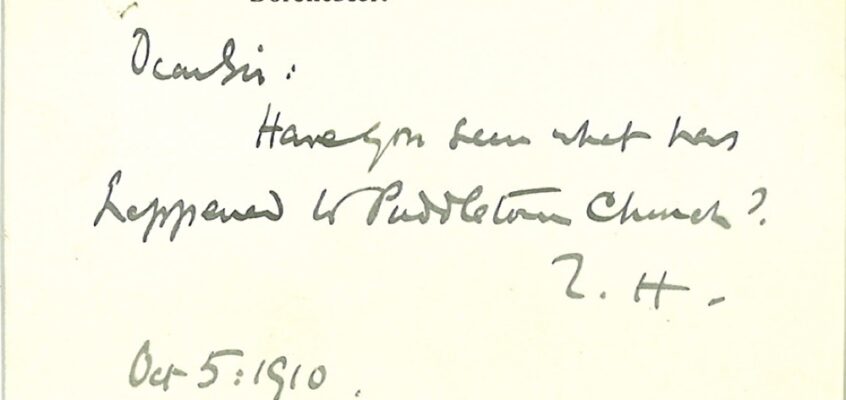 Dorchester.
Dear Sir:
Have you seen what has
happened to Puddletown Church?
T. H.
Oct 5: 1910.